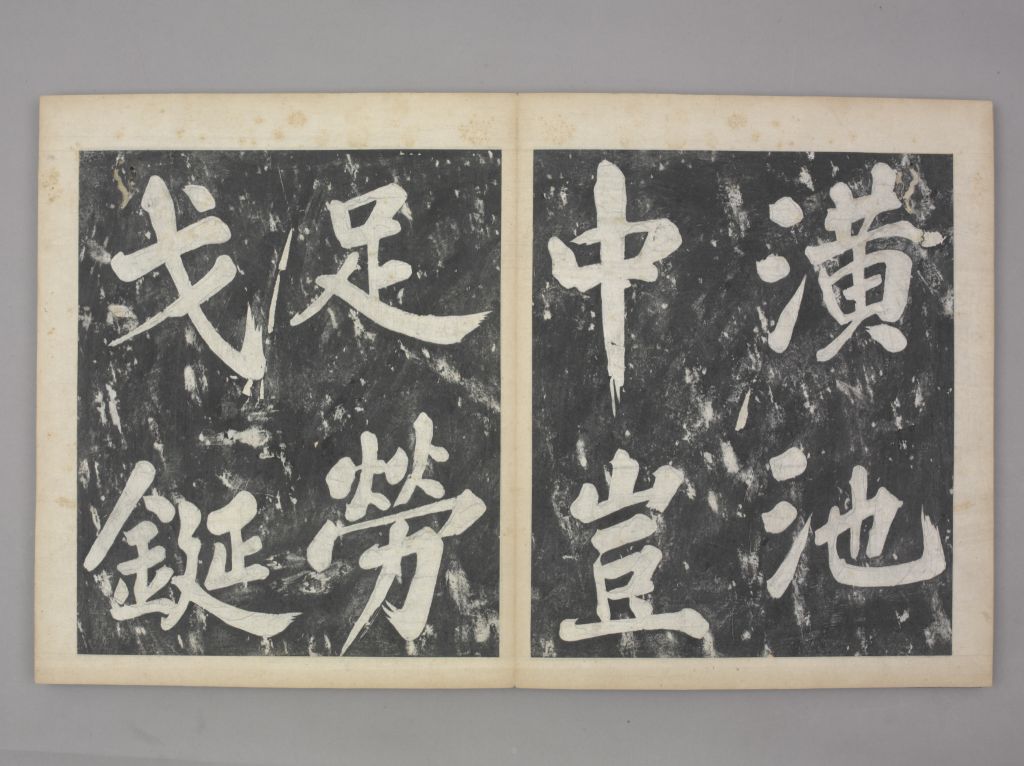 潢池
中豈
足勞
戈鋋